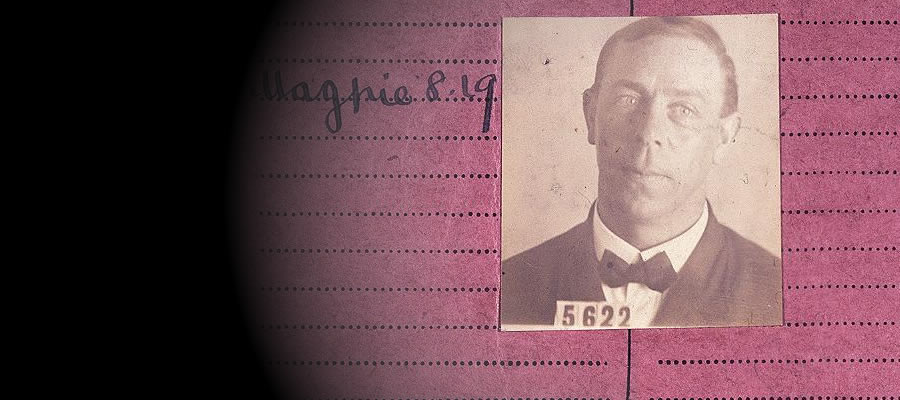 Magpie 8.19
5622